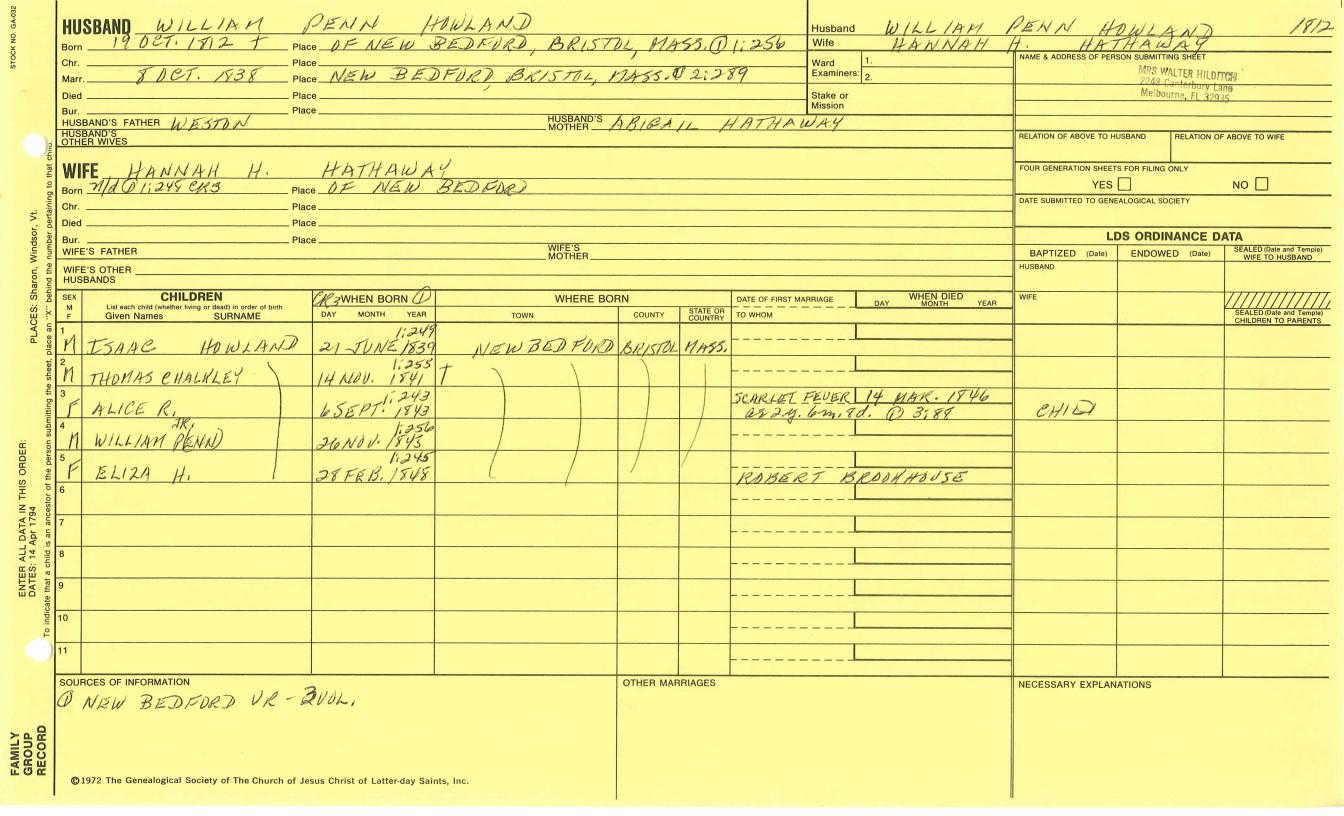 STOCK NO. GA-032
HUSBAND WILLIAM PENN HOWLAND
Born 19 OCT. 1812 † Place OF NEW BEDFORD, BRISTOL, MASS. ① 1:256
Chr. Place
Marr. 8 OCT. 1838 Place NEW BEDFORD, BRISTOL, MASS. ① 2:289
Died Place
Bur. Place
HUSBAND'S FATHER WESTON HUSBAND'S MOTHER ABIGAIL HATHAWAY
HUSBAND'S OTHER WIVES
Husband WILLIAM PENN HOWLAND 1812
Wife HANNAH H. HATHAWAY
Ward Examiners: 1.
2.
Stake or Mission
NAME & ADDRESS OF PERSON SUBMITTING SHEET
MRS. WALTER HILDITCH
2248 Canterbury Lane
Melbourne, FL 32935
RELATION OF ABOVE TO HUSBAND RELATION OF ABOVE TO WIFE
FOUR GENERATION SHEETS FOR FILING ONLY
YES NO
DATE SUBMITTED TO GENEALOGICAL SOCIETY
WIFE HANNAH H. HATHAWAY
Born n/d ① 1:249 CR3 Place OF NEW BEDFORD
Chr. Place
Died Place
Bur. Place
WIFE'S FATHER WIFE'S MOTHER
WIFE'S OTHER HUSBANDS
LDS ORDINANCE DATA
BAPTIZED (Date) ENDOWED (Date) SEALED (Date and Temple) WIFE TO HUSBAND
HUSBAND
WIFE
SEALED (Date and Temple) CHILDREN TO PARENTS
SEX M F
CHILDREN
List each child (whether living or dead) in order of birth
Given Names SURNAME
CR3 WHEN BORN ①
DAY MONTH YEAR
WHERE BORN
TOWN COUNTY STATE OR COUNTRY
DATE OF FIRST MARRIAGE
TO WHOM
WHEN DIED
DAY MONTH YEAR
1:249
1 M ISAAC HOWLAND 21 JUNE 1839 NEW BEDFORD BRISTOL MASS.
1:255
2 M THOMAS CHALKLEY 14 NOV. 1841 †
1:243 SCARLET FEVER 14 MAR. 1846
3 F ALICE R. 6 SEPT. 1843 as 2y. 6m. 8d. ① 3:88 CHILD
JR. 1:256
4 M WILLIAM PENN 26 NOV. 1845
1:245
5 F ELIZA H. 28 FEB. 1848 ROBERT BROOKHOUSE
6
7
8
9
10
11
SOURCES OF INFORMATION
① NEW BEDFORD VR - 3 VOL.
OTHER MARRIAGES
NECESSARY EXPLANATIONS
©1972 The Genealogical Society of The Church of Jesus Christ of Latter-day Saints, Inc.
FAMILY GROUP RECORD
ENTER ALL DATA IN THIS ORDER:
DATES: 14 Apr 1794
PLACES: Sharon, Windsor, Vt.
To indicate that a child is an ancestor of the person submitting the sheet, place an "X" behind the number pertaining to that child.